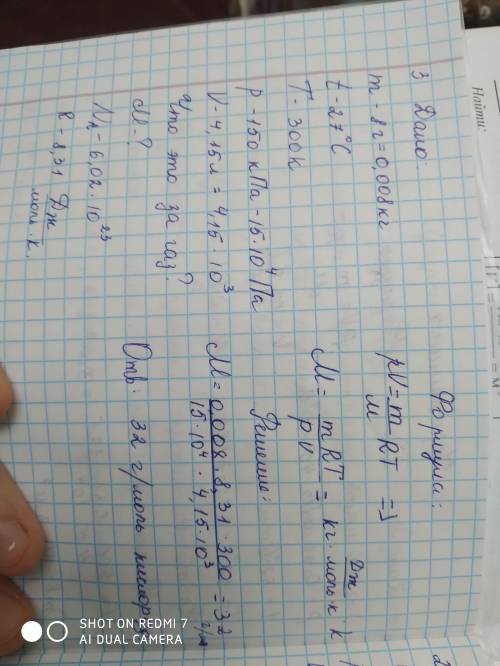 Найти:
3 Дано:
m - 8г = 0,008кг
t - 27°C
T - 300K
P - 150 кПа - 15·10⁴ Па
V - 4,15л = 4,15·10³
Что это за газ?
M - ?
Nₐ - 6,02·10²³
R - 8,31 Дж/моль·к.
Формула:
pV = m/M RT =>
M = mRT/pV = кг· Дж/моль·к K
Решение:
M = 0,008·8,31·300/15·10⁴·4,15·10³ = 32 г/м
Отв: 32 г/моль кислор
SHOT ON REDMI 7
AI DUAL CAMERA